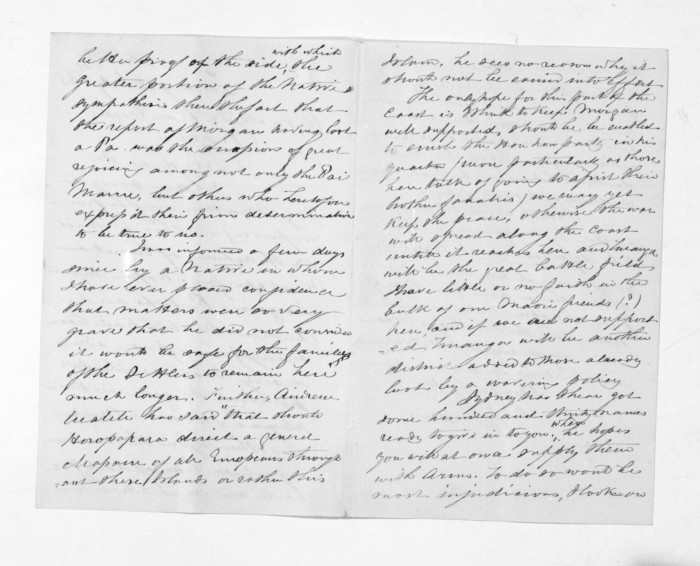 with which
better proof of the side, the
greater portion of the Natives
sympathise then the fact that
the report of Morgan having lost
a Pa was the occasion of great
rejoicing among not only the Pai
Marire, but others who heretofore
express'd their firm determination
to be true to us.
I was informed a few days
since by a Native in whom
I have ever placed confidence
that matters were so very
grave that he did not consider
it would be safe for the families
of the Settlers to remain here
much longer. Further, Andrew
has said "that should
Horopapara direct a general
of all Europeans through
out these Islands or rather this
Island, he sees no reason why it
should not be carried into effect
The only hope for this part of the
Coast is I think to keep Morgan
well supported, should he be enabled
to crush the Hau hau party in his
quarter (more particularly as those
here talk of going to assist their
brother fanatics) we may yet
keep the peace, otherwise the war
will spread along the Coast
until it reaches here and Turanga
will be the great battle field
I have little or no faith in the
bulk of our Maori friends (?)
here and if we are not support
=ed Turanga will be another
district added to those already
lost by a wavering policy
Sydney has I hear got
some hundred and thirty names
ready to give in to you, when he hopes
you will at once supply them
with Arms. To do so would be
most injudicious, I look on